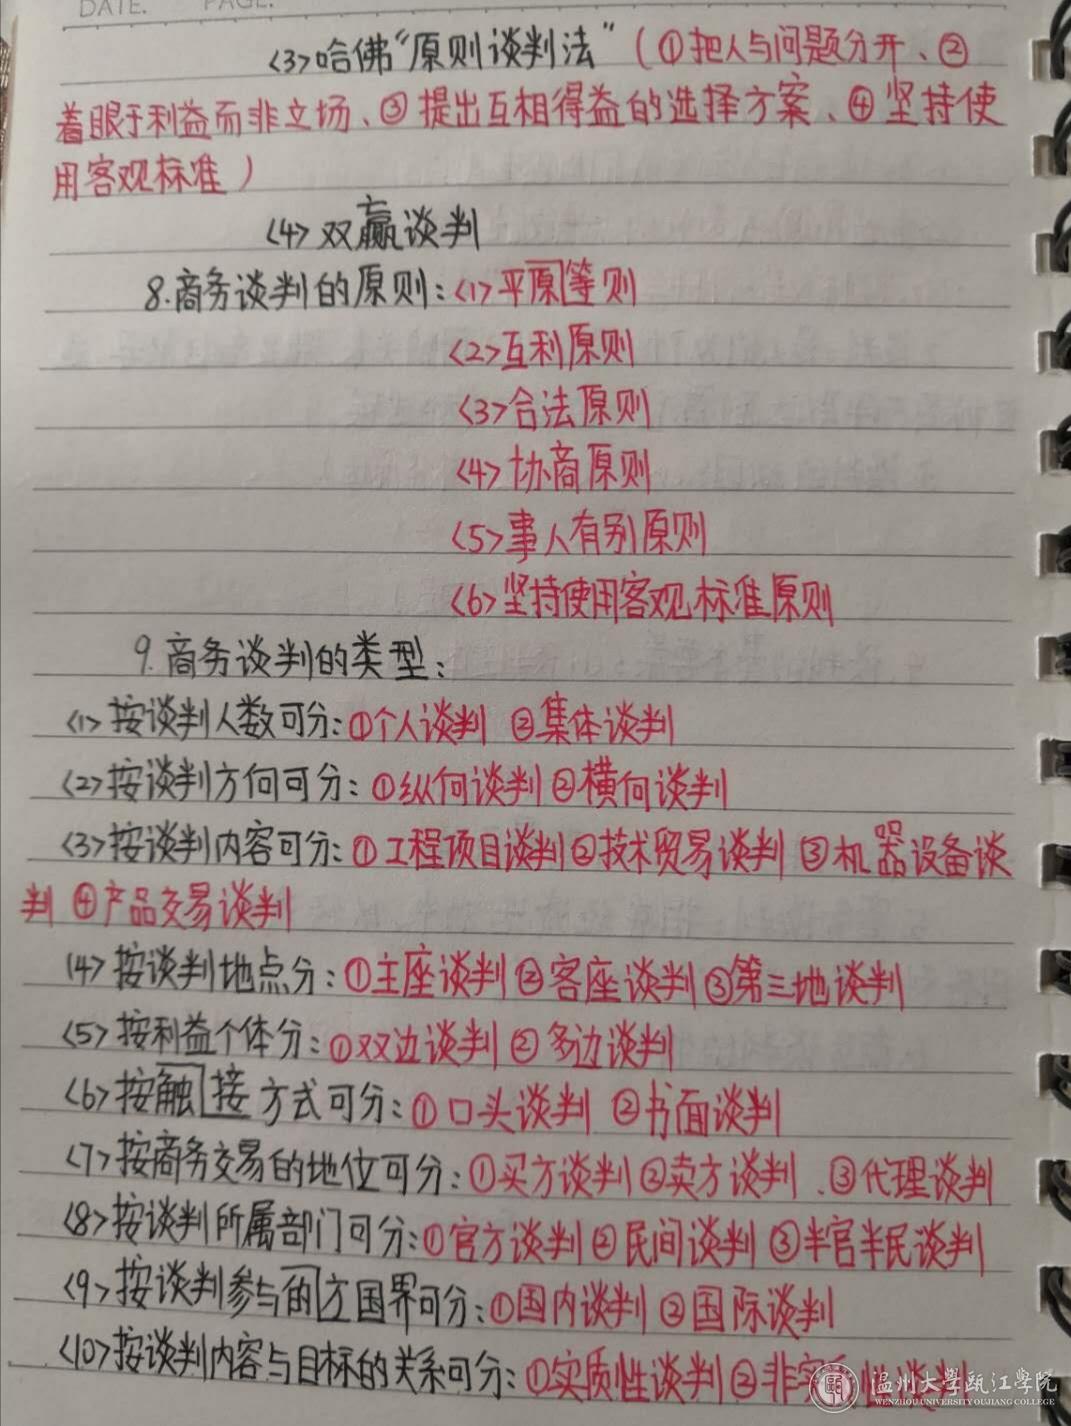 DATE. PAGE.
<3>哈佛“原则谈判法”(①把人与问题分开、②
着眼于利益而非立场、③提出互相得益的选择方案、④坚持使
用客观标准)
<4>双赢谈判
8.商务谈判的原则:<1>平原等则
<2>互利原则
<3>合法原则
<4>协商原则
<5>事人有别原则
<6>坚持使用客观标准原则
9.商务谈判的类型:
<1>按谈判人数可分:①个人谈判 ②集体谈判
<2>按谈判方向可分:①纵向谈判②横向谈判
<3>按谈判内容可分:①工程项目谈判②技术贸易谈判③机器设备谈
判 ④产品交易谈判
<4>按谈判地点分:①主座谈判②客座谈判③第三地谈判
<5>按利益个体分:①双边谈判②多边谈判
<6>按触接方式可分:①口头谈判 ②书面谈判
<7>按商务交易的地位可分:①买方谈判②卖方谈判.③代理谈判
<8>按谈判所属部门可分:①官方谈判②民间谈判③半官半民谈判
<9>按谈判参与的方国界可分:①国内谈判②国际谈判
<10>按谈判内容与目标的关系可分:①实质性谈判②非实质性谈判
温州大學瓯江學院
WENZHOU UNIVERSITY OUJIANG COLLEGE